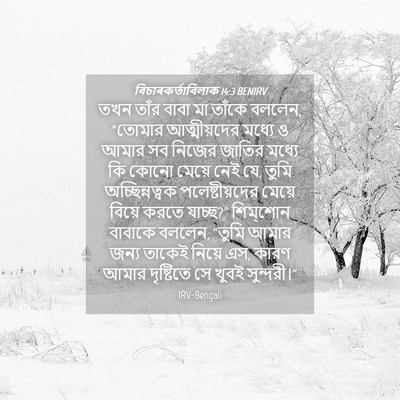 বিচাৰকৰ্ত্তাবিলাক 14:3 BENIRV
তখন তাঁর বাবা মা তাঁকে বললেন,
“তোমার আত্মীয়দের মধ্যে ও
আমার সব নিজের জাতির মধ্যে
কি কোনো মেয়ে নেই যে, তুমি
অচ্ছিন্নত্বক পলেষ্টীয়দের মেয়ে
বিয়ে করতে যাচ্ছ?” শিম্‌শোন
বাবাকে বললেন, “তুমি আমার
জন্য তাকেই নিয়ে এস, কারণ
আমার দৃষ্টিতে সে খুবই সুন্দরী।”
IRV-Bengali